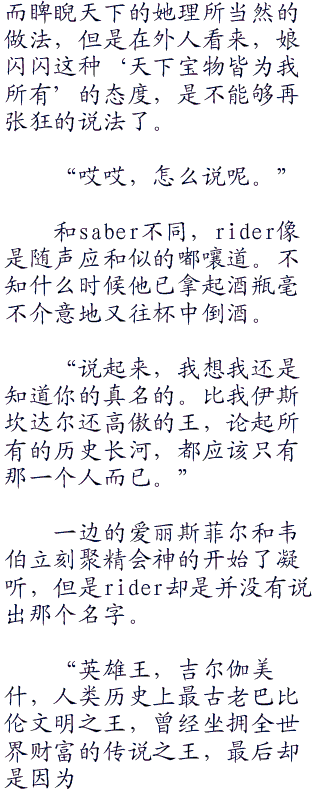 而睥睨天下的她理所当然的
做法，但是在外人看来，娘
闪闪这种‘天下宝物皆为我
所有’的态度，是不能够再
张狂的说法了。
“哎哎，怎么说呢。”
和saber不同，rider像
是随声应和似的嘟囔道。不
知什么时候他已拿起酒瓶毫
不介意地又往杯中倒酒。
“说起来，我想我还是
知道你的真名的。比我伊斯
坎达尔还高傲的王，论起所
有的历史长河，都应该只有
那一个人而已。”
一边的爱丽斯菲尔和韦
伯立刻聚精会神的开始了凝
听，但是rider却是并没有说
出那个名字。
“英雄王，吉尔伽美
什，人类历史上最古老巴比
伦文明之王，曾经坐拥全世
界财富的传说之王，最后却
是因为